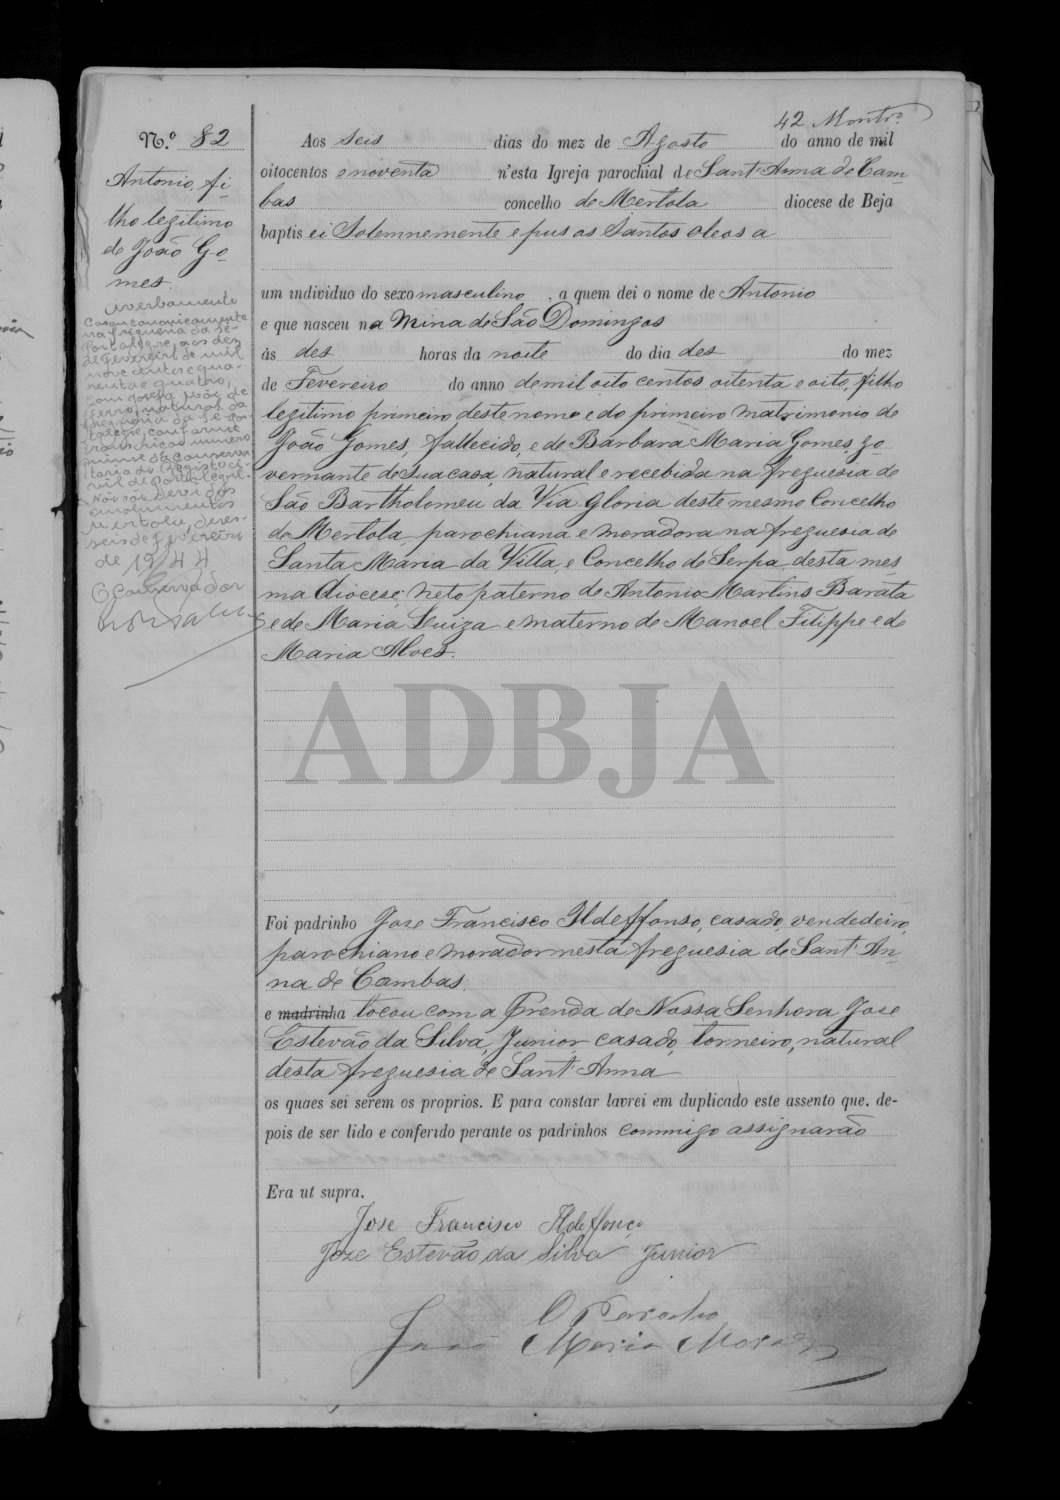 42 Montrº
N.º 82
Antonio, fi-
lho legitimo
de João Go-
mes.
averbamento
Casou canonicamente
na freguesia da Sé-
Portalegre, aos dez
de Fevereiro de mil
nove centos e qua-
renta e quatro,
com
natural da
freguesia da Sé Por-
talegre, conforme
numero
da conserva-
toria do registo ci-
vil de Portalegre.
Não são devidos
emolumentos
Mertola, dezes-
seis de Fevereiro
de 1944
O Conservador
Aos seis dias do mez de Agosto do anno de mil
oitocentos e noventa n'esta Igreja parochial de Sant'Anna de Cam-
bas concelho de Mertola diocese de Beja
baptisei Solemnemente e pus os Santos oleos a
um individuo do sexo masculino, a quem dei o nome de Antonio
e que nasceu na Mina de São Domingos
ás des horas da noite do dia des do mez
de Fevereiro do anno de mil oito centos oitenta e oito, filho
legitimo primeiro deste nome e do primeiro matrimonio de
João Gomes, fallecido, e de Barbara Maria Gomes, go-
vernante de sua casa, natural e recebida na freguesia de
São Bartholomeu da Via Gloria deste mesmo Concelho
de Mertola parochiana e moradora na freguesia de
Santa Maria da Villa, e Concelho de Serpa desta mes
ma diocese, neto paterno de Antonio Martins Barata
e de Maria Luiza e materno de Manoel Filippe e de
Maria Alves.
ADBJA
Foi padrinho Jose Francisco Ildeffonso, casado, vendedeiro,
parochiano e morador nesta freguesia de Sant' An-
na de Cambas.
e madrinha tocou com a Prenda de Nossa Senhora Jose
Estevão da Silva, Junior, casado, torneiro, natural
desta freguesia de Sant' Anna
os quaes sei serem os proprios. E para constar lavrei em duplicado este assento que, de-
pois de ser lido e conferido perante os padrinhos commigo assignarão
Era ut supra.
Jose Francisco Ildeffonço
Joze Estevão da Silva Junior
O Parocho
João Maria